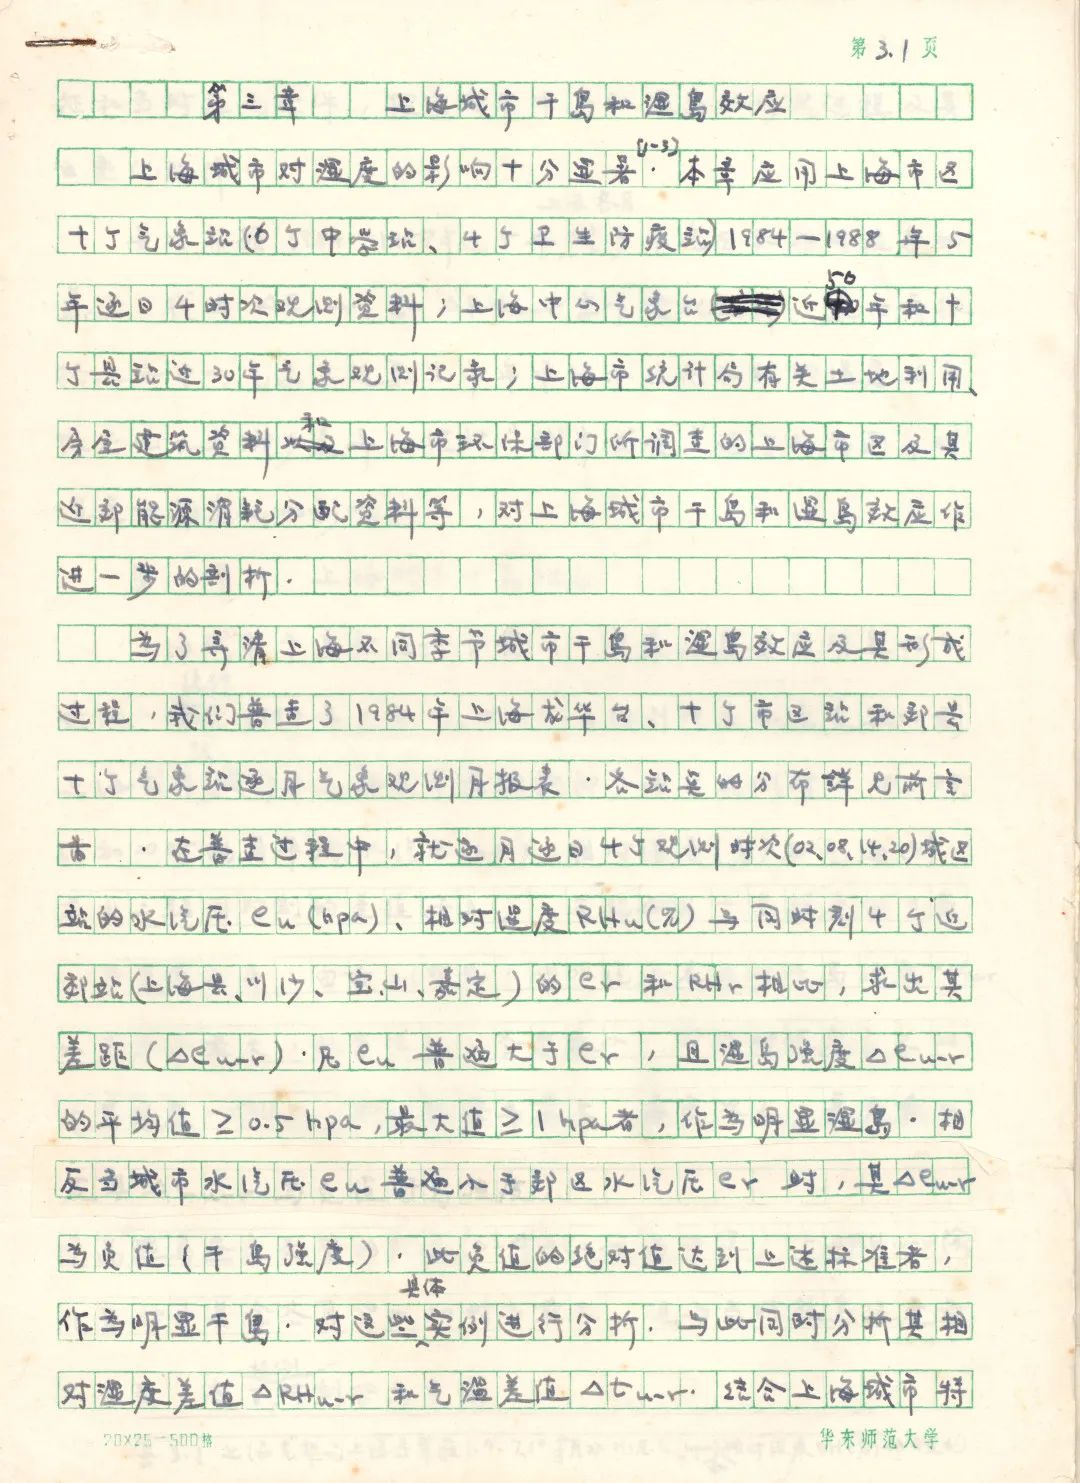 第3.1页
第三章 上海城市干岛和湿岛效应
上海城市对湿度的影响十分显著[1-3]. 本章应用上海市区
十个气象站(6个中学站、4个卫生防疫站)1984—1988年5
年逐日4时次观测资料；上海中心气象台近50年和十
个县站近30年气象观测记录；上海市统计局有关土地利用、
房屋建筑资料和上海市环保部门所调查的上海市区及其
近郊能源消耗分配资料等，对上海城市干岛和湿岛效应作
进一步的剖析.
为了弄清上海不同季节城市干岛和湿岛效应及其形成
过程，我们普查了1984年上海龙华台、十个市区站和郊县
十个气象站逐月气象观测月报表. 各站点的分布详见前言
. 在普查过程中，就逐月逐日4个观测时次(02、08、14、20)城区
站的水汽压eu(hpa)、相对湿度RHu(%)与同时刻4个近
郊站(上海县、川沙、宝山、嘉定)的er和RHr相比，求出其
差距(△eu-r). 凡eu普遍大于er，且湿岛强度△eu-r
的平均值≥0.5hpa，最大值≥1hpa者，作为明显湿岛. 相
反当城市水汽压eu普遍小于郊区水汽压er时，其△eu-r
为负值(干岛强度). 此负值的绝对值达到上述标准者，
作为明显干岛. 对这些具体实例进行分析. 与此同时分析其相
对湿度差值△RHu-r和气温差值△tu-r. 结合上海城市特
20×25=500格 华东师范大学